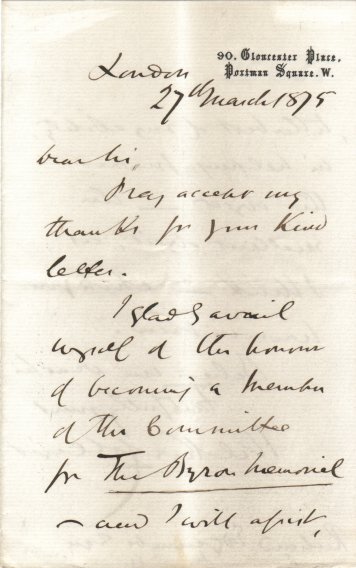 90. Gloucester Place,
Portman Square. W.
London
27th March 1875
Dear Sir,
Pray accept my
thanks for your kind
letter.
I gladly avail
myself of the honour
of becoming a member
of the Committee
for The Byron Memorial
- and I will assist,